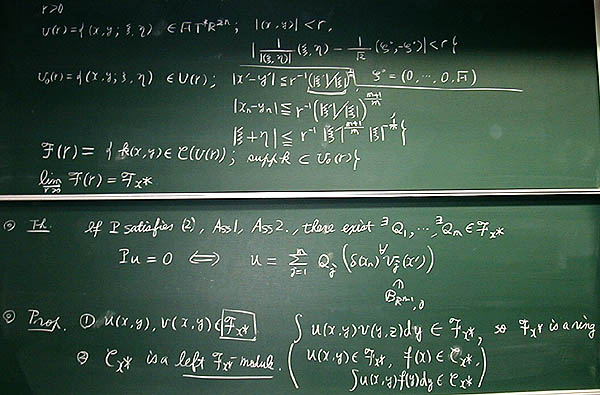 r>0
U(r) = { (x,y; ξ,η) ∈ √-1 T*R²ⁿ ; |(x,y)| < r,
| 1/|(ξ,η)| (ξ,η) − 1/√2 (ξ°,−ξ°) | < r }
U₀(r) = { (x,y; ξ,η) ∈ U(r) ; |x'−y'| ≦ r⁻¹(|ξ'|/|ξ|) ξ° = (0,⋯,0,√-1)
|xₙ−yₙ| ≦ r⁻¹(|ξ'|/|ξ|)^{(m+1)/m}
|ξ+η| ≦ r⁻¹ |ξ'| |ξ| }
F(r) = { k(x,y) ∈ C(U(r)) ; supp k ⊂ U₀(r) }
lim F(r) = F_{x*}
◎ Th. If P satisfies (2), Ass1, Ass2., there exist ∃Q₁,⋯,∃Qₘ ∈ F_{x*}
Pu = 0 ⟺ u = Σ_{j=1}^{m} Q_j (δ(xₙ) ∀v_j(x'))
B_{Rⁿ⁻¹,0}
◎ Prop. ① u(x,y), v(x,y) ∈ F_{x*} ∫ u(x,y)v(y,z)dy ∈ F_{x*}, so F_{x*} is a ring
② C_{x*} is a left F_{x*}-module. ( u(x,y) ∈ F_{x*}, f(x) ∈ C_{x*},
∫ u(x,y)f(y)dy ∈ C_{x*} )